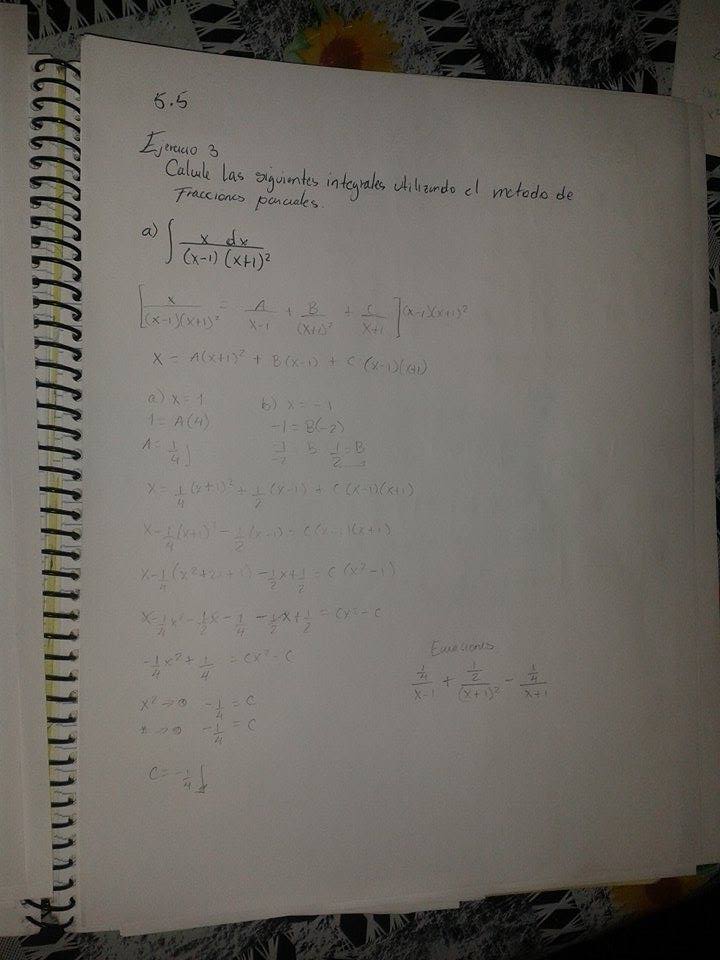 5.5
Ejercicio 3
Calcule las siguientes integrales utilizando el metodo de
Fracciones parciales.
a) ∫ x dx / (x-1)(x+1)²
[ x / (x-1)(x+1)² = A / x-1 + B / (x+1)² + C / x+1 ] (x-1)(x+1)²
x = A(x+1)² + B(x-1) + C(x-1)(x+1)
a) x = 1 b) x = -1
1 = A(4) -1 = B(-2)
A = 1/4 -1/-2 = B 1/2 = B
x = 1/4 (x+1)² + 1/2 (x-1) + C(x-1)(x+1)
x - 1/4 (x+1)² - 1/2 (x-1) = C(x-1)(x+1)
x - 1/4 (x²+2x+1) - 1/2 x + 1/2 = C(x²-1)
x - 1/4 x² - 1/2 x - 1/4 - 1/2 x + 1/2 = Cx² - C
-1/4 x² + 1/4 = Cx² - C
x² → -1/4 = C
-1/4 = C
C = -1/4
Ecuaciones
1/4 / x-1 + 1/2 / (x+1)² - 1/4 / x+1